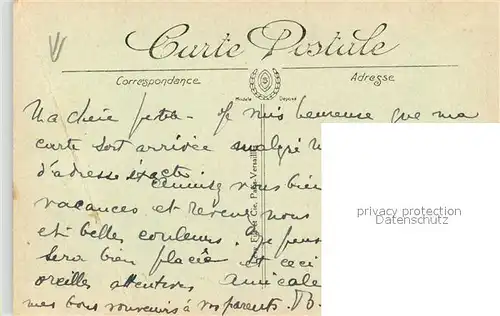 Carte Postale
Correspondance
Adresse
Modèle Déposé
Ma chère petite - Je suis heureuse que ma
carte soit arrivée malgré
d'adresse exacte.
vous bien
vacances et revenez nous
et belles couleurs. Je
sera bien placée et ceci
oreilles attentives Amicale
mes bons souvenirs à vos parents.
et Cie, Paris-Versailles
privacy protection
www.oldthing.de